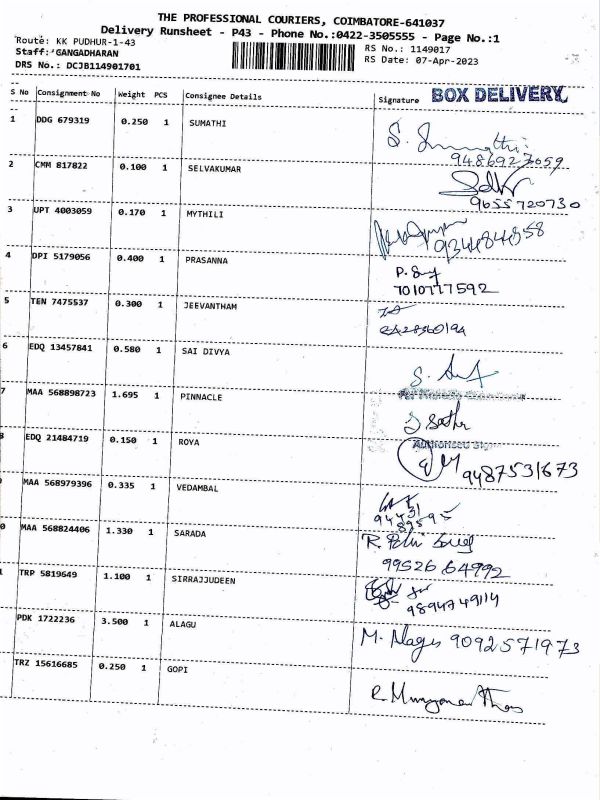 THE PROFESSIONAL COURIERS, COIMBATORE-641037
Delivery Runsheet - P43 - Phone No.:0422-3505555 - Page No.:1
Route: KK PUDHUR-1-43 RS No.: 1149017
Staff: GANGADHARAN RS Date: 07-Apr-2023
DRS No.: DCJB114901701
S No Consignment No Weight PCS Consignee Details Signature BOX DELIVERY
1 DDG 679319 0.250 1 SUMATHI
9486927659
2 CMM 817822 0.100 1 SELVAKUMAR
9655720730
3 UPT 4003059 0.170 1 MYTHILI
4 DPI 5179056 0.400 1 PRASANNA
7010777592
5 TEN 7475537 0.300 1 JEEVANTHAM
6 EDQ 13457841 0.580 1 SAI DIVYA
7 MAA 568898723 1.695 1 PINNACLE
EDQ 21484719 0.150 1 ROYA
9487531673
MAA 568979396 0.335 1 VEDAMBAL
0 MAA 568824406 1.330 1 SARADA
9952664992
TRP 5819649 1.100 1 SIRRAJJUDEEN
9894749114
PDK 1722236 3.500 1 ALAGU M. Alagu 9092571973
TRZ 15616685 0.250 1 GOPI